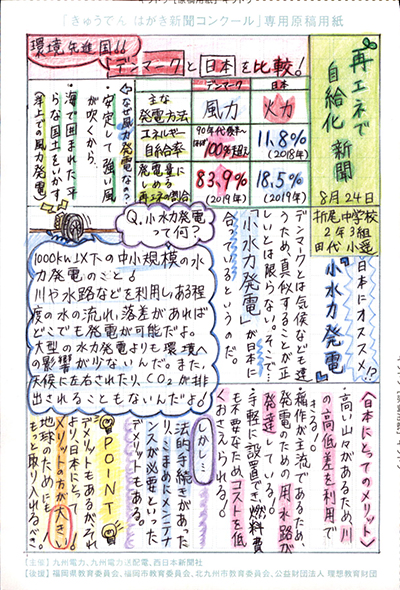 「きゅうでん はがき新聞コンクール」専用原稿用紙
再エネで
自給化 新聞
8月24日
折尾中学校
2年3組
田代 小遥
環境先進国!!
デンマークと日本を比較！
デンマーク
日本
主な
発電方法
風力
火力
エネルギー
自給率
90年代後半、
ほぼ
100%超え
11.8%
(2018年)
発電量に
しめる
再エネの割合
83.9%
(2019年)
18.5%
(2019年)
〈なぜ風力発電なの？〉
・安定して強い風
が吹くから。
・海で囲まれた平
らな国土をいかす。
(洋上での風力発電)
日本にオススメ!?
『小水力発電』
デンマークとは気候なども違
うため、真似することが正
しいとは限らない。そこで…
「小水力発電」が日本に
合っているというのだ。
Q.小水力発電
って何？
1000kw以下の中小規模の水
力発電のこと！
川や水路などを利用し、ある程
度の水の流れ、落差があれば
どこでも発電が可能だよ。
大型の水力発電よりも環境へ
の影響が少ないんだ。また、
天候に左右されたり、CO2が排
出されることもないんだよ！
〈日本にとってのメリット〉
・高い山々があるため、川
の高低差を利用で
きる！
・稲作が主流であるため
発電のための用水路が
発達している！
・手軽に設置でき、燃料費
も不要なため、コストを低
くおさえられる！
しかし…
法的手続きがあった
り、こまめにメンテナ
ンスが必要といった
デメリットもある。
POINT
デメリットもあるがそれ
より日本にとって
メリットの方が大きい。
地球のためにも
もっと取り入れるべき。
[主催] 九州電力、九州電力送配電、西日本新聞社
[後援] 福岡県教育委員会、福岡市教育委員会、北九州市教育委員会、公益財団法人 理想教育財団